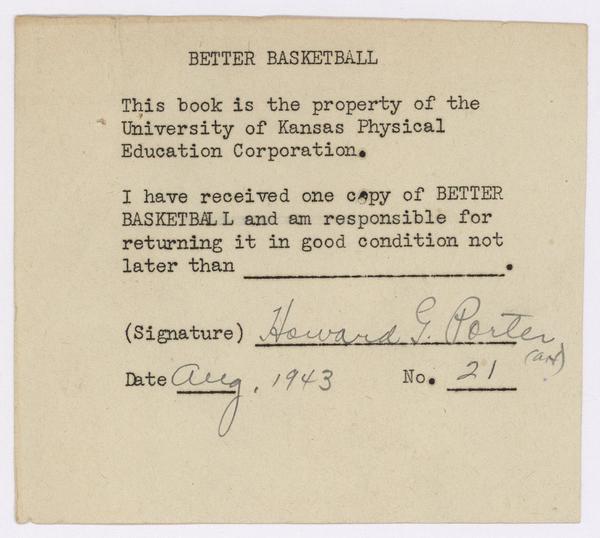 BETTER BASKETBALL
This book is the property of the
University of Kansas Physical
Education Corporation.
I have received one copy of BETTER
BASKETBALL and am responsible for
returning it in good condition not
later than ____________.
(Signature) Howard G. Porter
Date Aug, 1943 No. 21